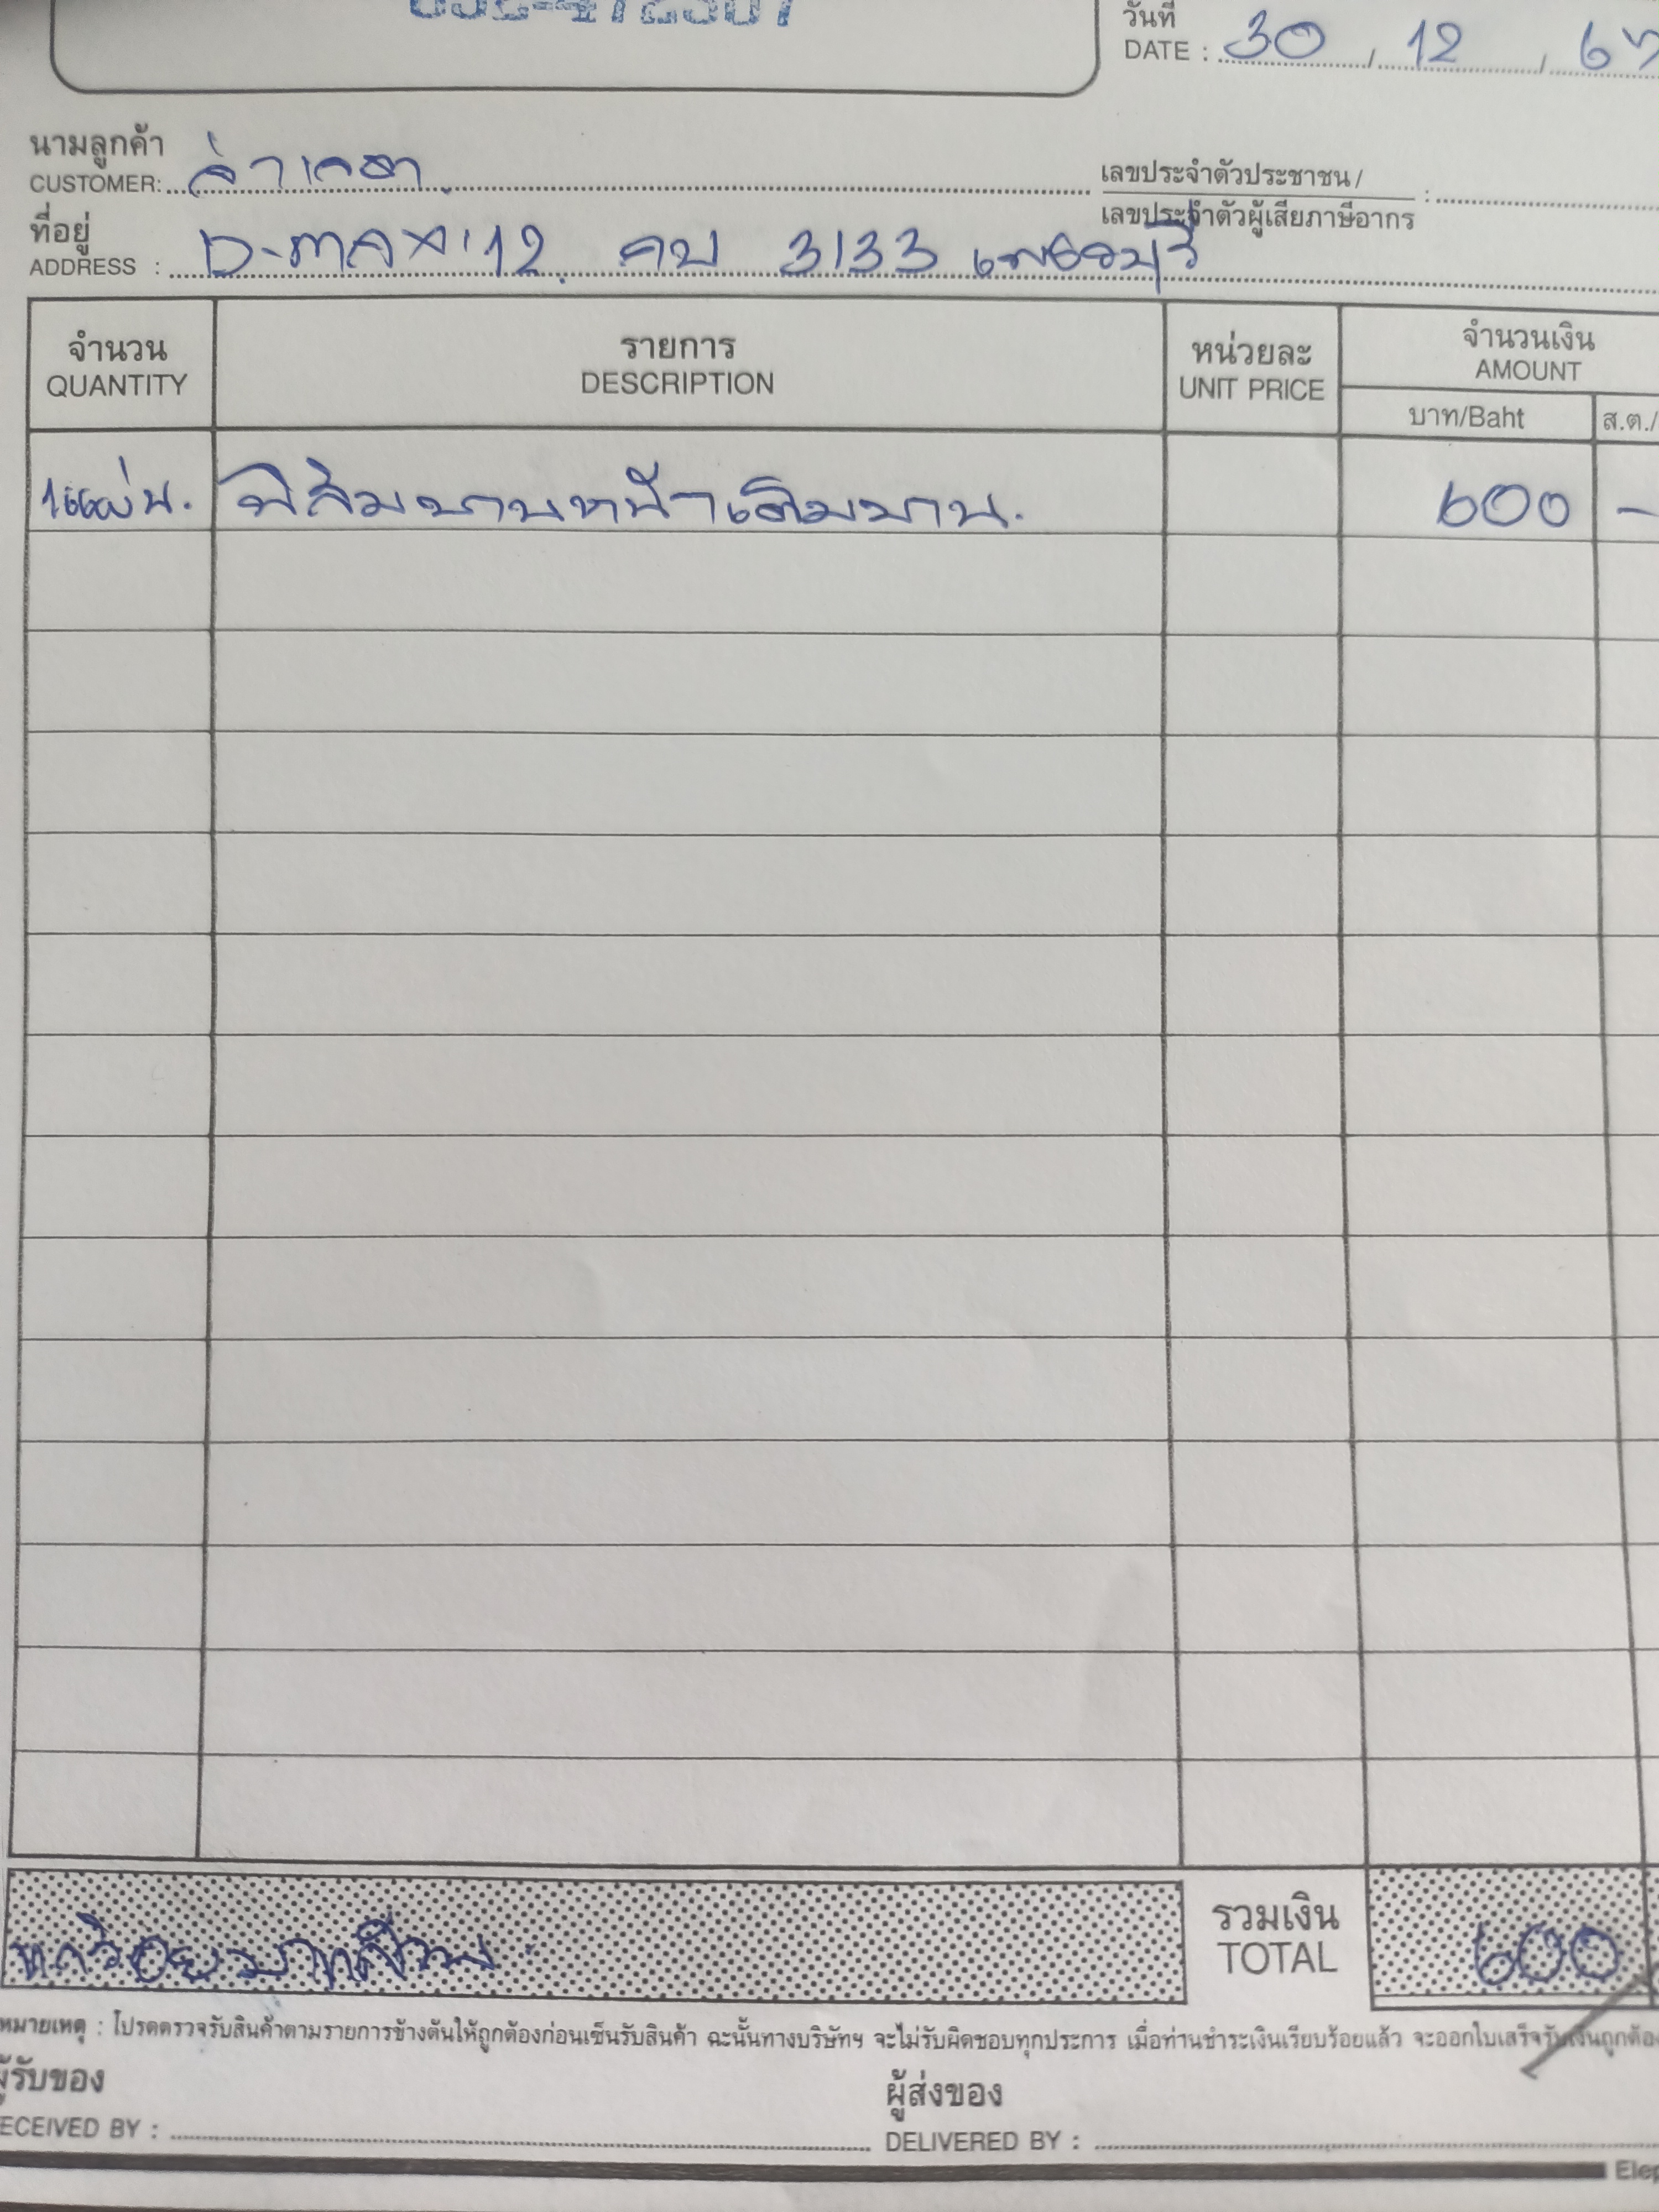 032-472507
วันที่
DATE : 30 / 12 / 67
นามลูกค้า
CUSTOMER: จ่าเจตา
เลขประจำตัวประชาชน /
เลขประจำตัวผู้เสียภาษีอากร :
ที่อยู่
ADDRESS : D-max'12. คบ 3133 เพชรบุรี
จำนวน รายการ หน่วยละ จำนวนเงิน
QUANTITY DESCRIPTION UNIT PRICE AMOUNT
บาท/Baht ส.ต./
1แผ่น. ฟิล์มบานหน้าเต็มบาน. 600 -
หกร้อยบาทถ้วน
รวมเงิน
TOTAL 600
หมายเหตุ : โปรดตรวจรับสินค้าตามรายการข้างต้นให้ถูกต้องก่อนเซ็นรับสินค้า ฉะนั้นทางบริษัทฯ จะไม่รับผิดชอบทุกประการ เมื่อท่านชำระเงินเรียบร้อยแล้ว จะออกใบเสร็จรับเงินถูกต้อง
ผู้รับของ ผู้ส่งของ
ECEIVED BY : DELIVERED BY :
Elep